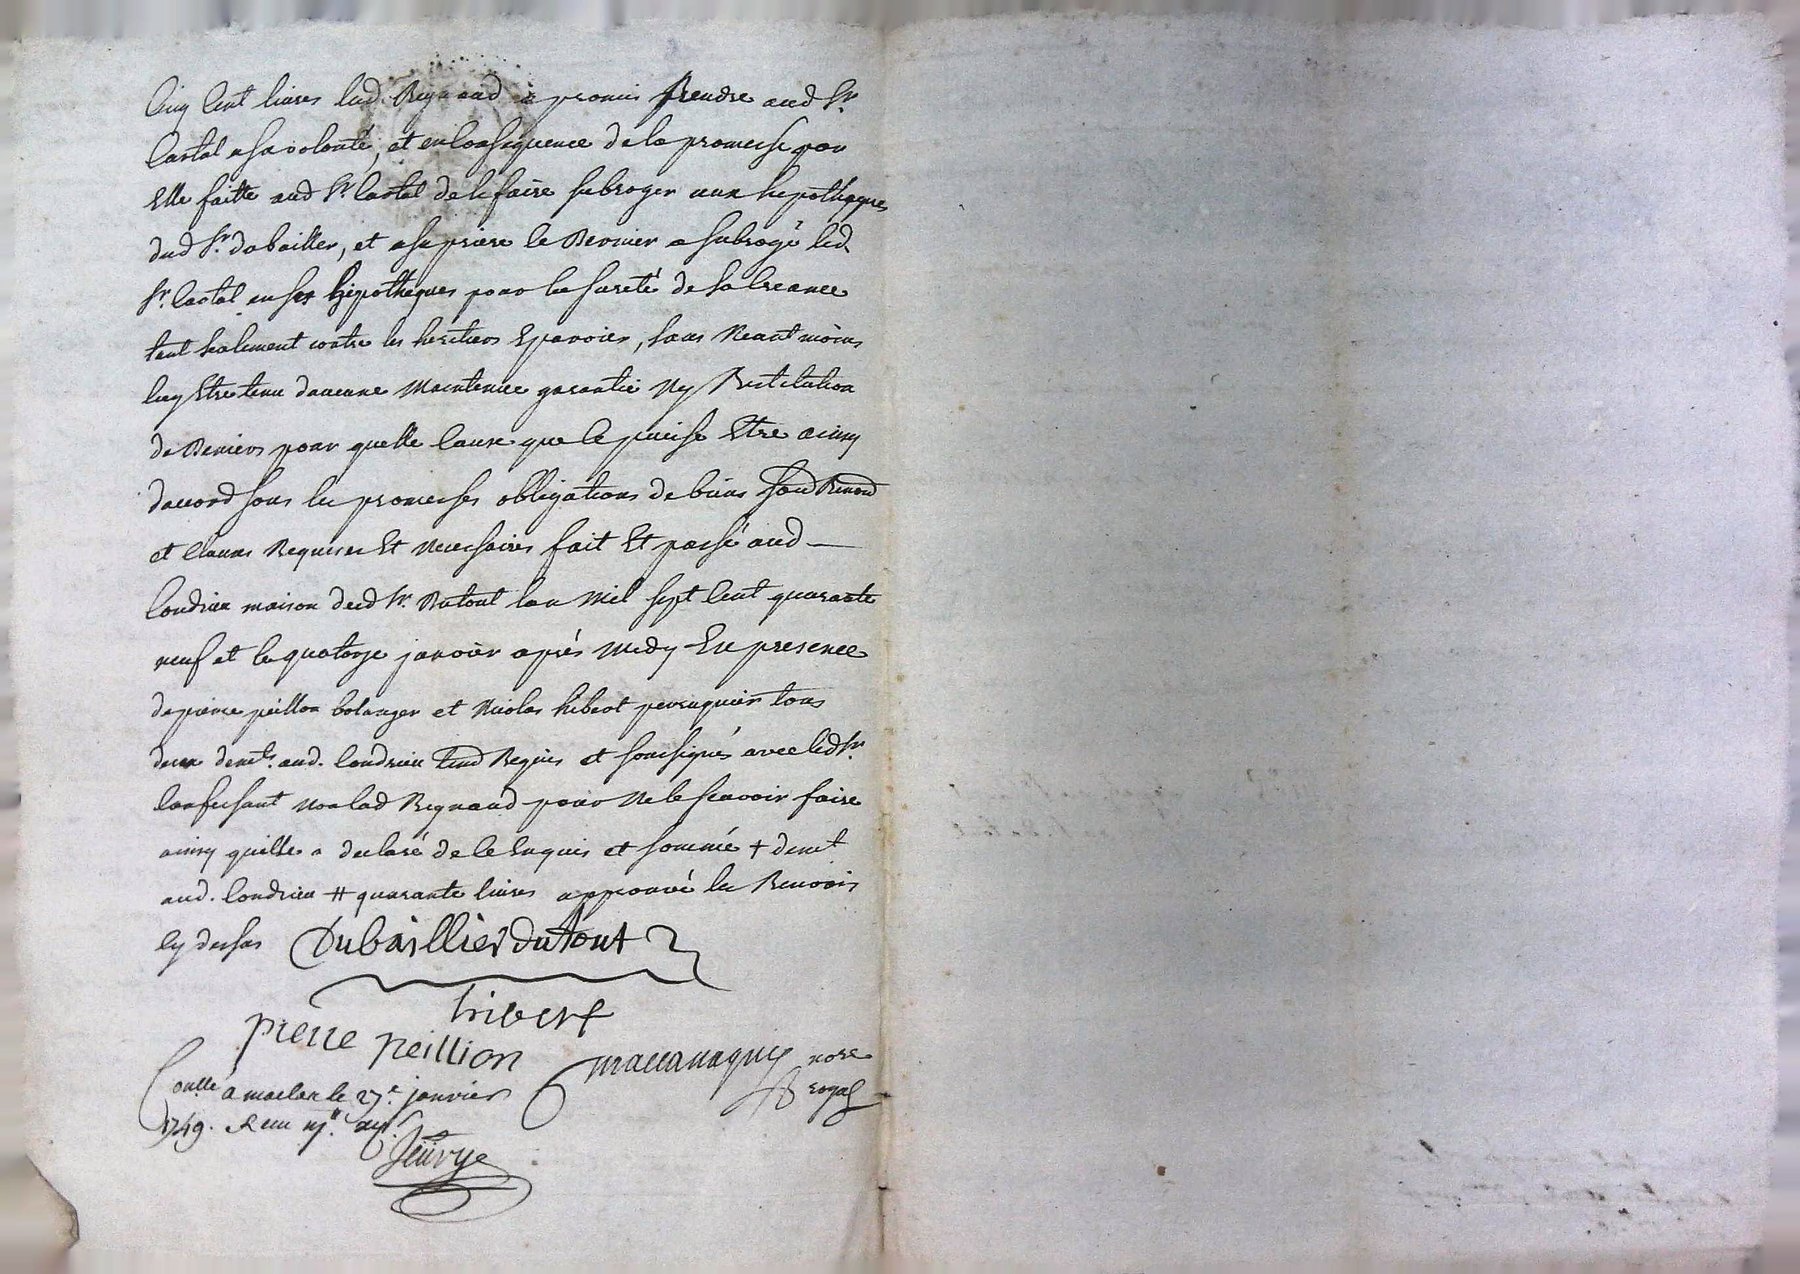 Cinq Cent livres lad. Reynaud a promis rendre aud Sr.
Castal a sa volonté, et en Consequence de la promesse par
Elle faitte aud Sr. Castal de le faire subroger aux hipotheques
dud Sr. dubaillier, et a sa priere le dernier a subrogé led.
Sr. Castal en ses hipotheques pour la sureté de sa Creance
tant seulement contre les heritiers Eparvier, sans Neantmoins
luy Etre tenu daucune Maintenüe garantie Ny Restitution
de deniers pour quelle Cause que ce puisse Etre ainsy
dacord sous les promesses obligations de biens
et Clauses Requises Et Necessaires fait Et passé aud
Condrieu maison dud Sr. Dutout lan Mil sept Cent quarante
neuf et le quatorze janvier aprés Midy En presence
de pierre peillon bolanger et Nicolas hibert perruquier tous
deux demts. aud. Condrieu Requis et soussignés avec led Sr.
Confessant Non lad Reynaud pour Ne le scavoir faire
ainsy quelle a declaré de ce Enquis et sommé + demt
aud. Condrieu # quarante livres approuvé les Renvois
Cy dessus Dubaillier dutout
hibert
pierre peillion
maccanaguy nore
royal
Conllé a maclas le 27e. janvier
1749. Receu
Jeürye